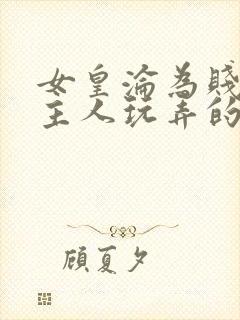 女皇淪為賤
主人玩弄的
顧夏夕